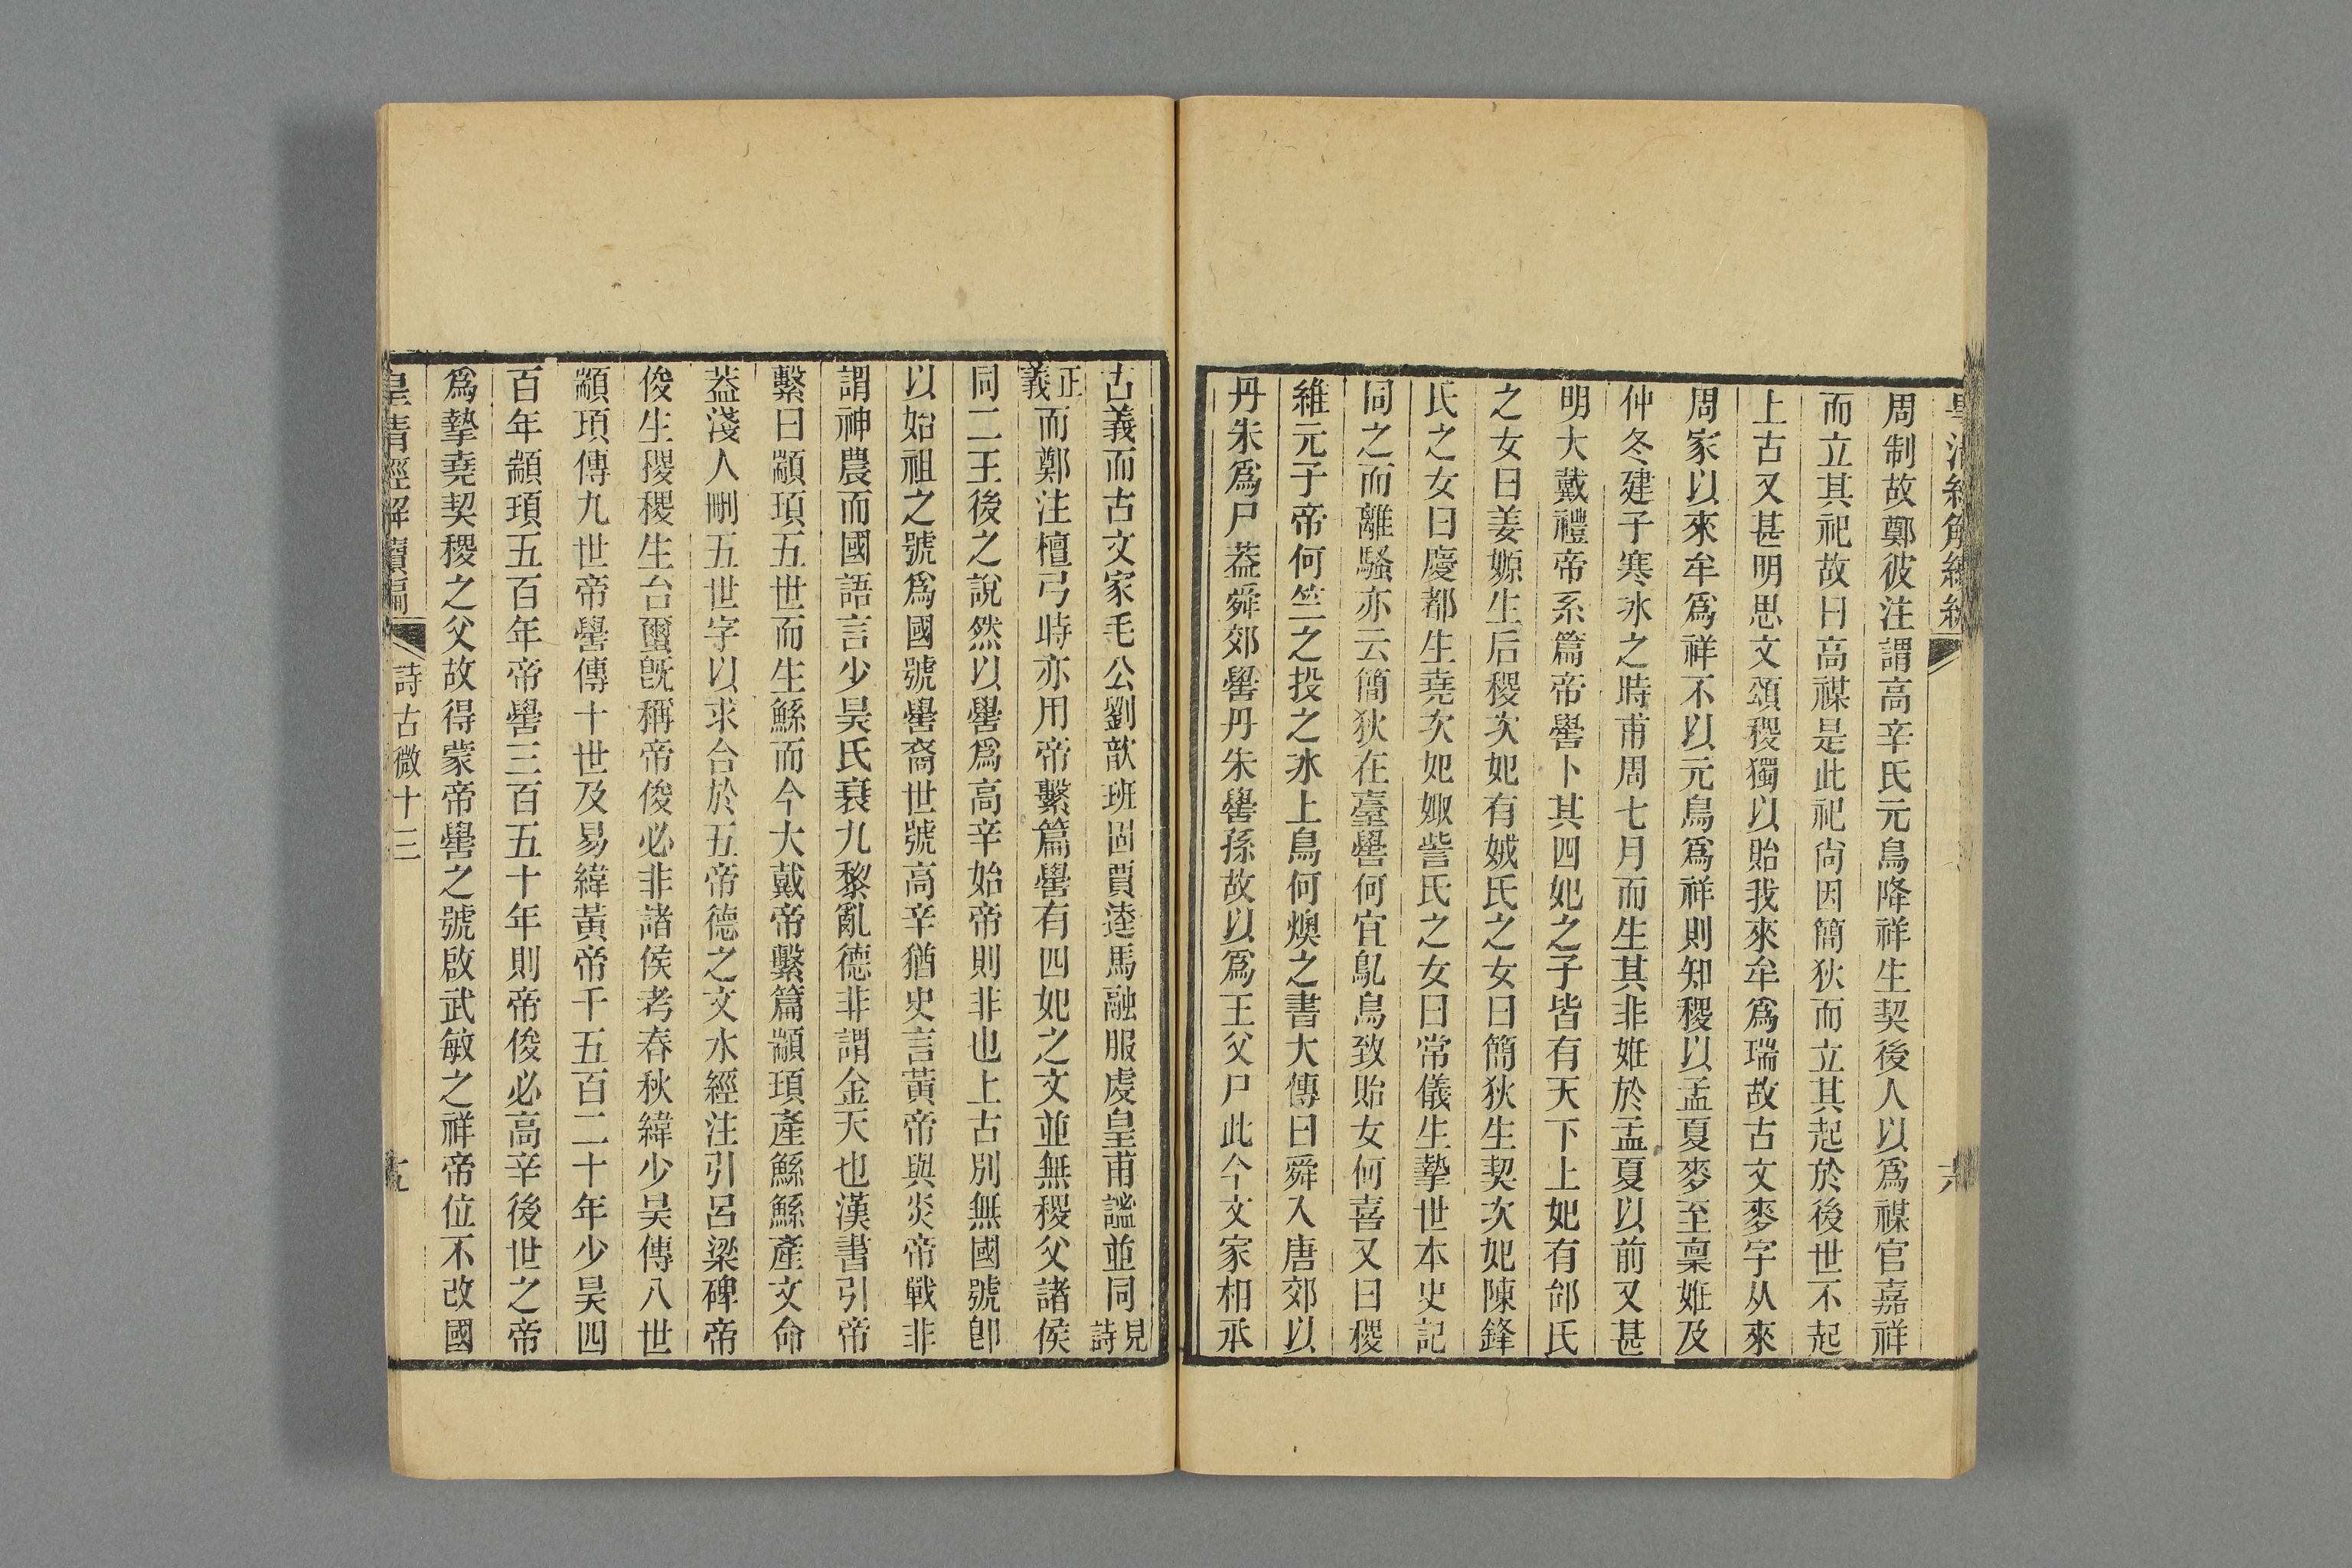 周制故鄭彼注謂高辛氏元鳥降祥生契後人以爲禖官嘉祥
而立其祀故曰高禖是此祀尙因簡狄而立其起於後世不起
上古又甚明思文頌稷獨以貽我來牟爲瑞故古文麥字从來
周家以來牟爲祥不以元鳥爲祥則知稷以孟夏麥至稟姙及
仲冬建子寒冰之時甫周七月而生其非姙於孟夏以前又甚
明大戴禮帝系篇帝嚳卜其四妃之子皆有天下上妃有邰氏
之女曰姜嫄生后稷次妃有娀氏之女曰簡狄生契次妃陳鋒
氏之女曰慶都生堯次妃娵訾氏之女曰常儀生摯世本史記
同之而離騷亦云簡狄在臺嚳何宜鳦鳥致貽女何喜又曰稷
維元子帝何竺之投之冰上鳥何燠之書大傳曰舜入唐郊以
丹朱爲尸葢舜郊嚳丹朱嚳孫故以爲王父尸此今文家相承
古義而古文家毛公劉歆班固賈逵馬融服虔皇甫謐並同見詩
正義而鄭注檀弓時亦用帝繫篇嚳有四妃之文並無稷父諸侯
同二王後之說然以嚳爲高辛始帝則非也上古別無國號卽
以始祖之號爲國號嚳裔世號高辛猶史言黃帝與炎帝戰非
謂神農而國語言少昊氏衰九黎亂德非謂金天也漢書引帝
繫曰顓頊五世而生鯀而今大戴帝繫篇顓頊產鯀鯀產文命
葢淺人刪五世字以求合於五帝德之文水經注引呂梁碑帝
俊生稷稷生台璽旣稱帝俊必非諸侯考春秋緯少昊傳八世
顓頊傳九世帝嚳傳十世及易緯黃帝千五百二十年少昊四
百年顓頊五百年帝嚳三百五十年則帝俊必高辛後世之帝
爲摯堯契稷之父故得蒙帝嚳之號啟武敏之祥帝位不改國
皇淸經解續編
詩古微十三